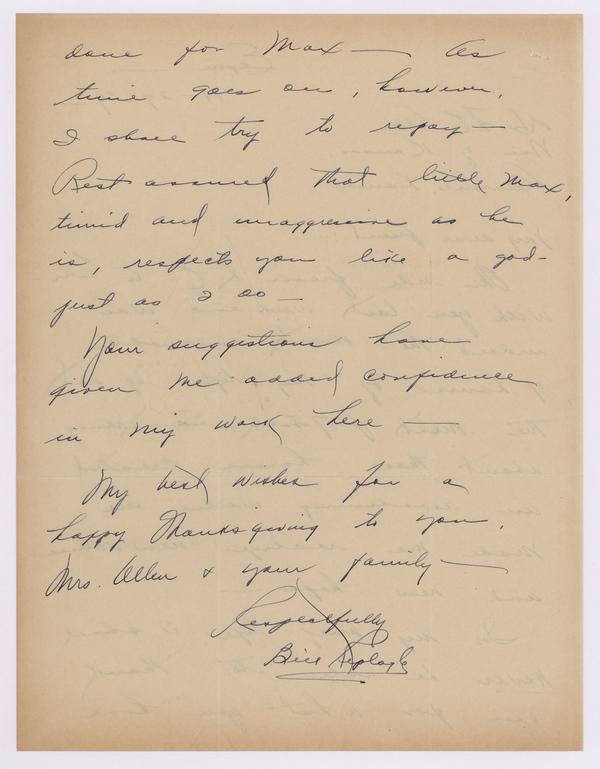 done for Max — As
time goes on, however,
I shall try to repay —
Rest assured that little Max,
timid and unaggressive as he
is, respects you like a god -
just as I do —
Your suggestions have
given me added confidence
in my work here —
My best wishes for a
happy Thanksgiving to you,
Mrs. Allen & your family —
Respectfully
Bill Replogle